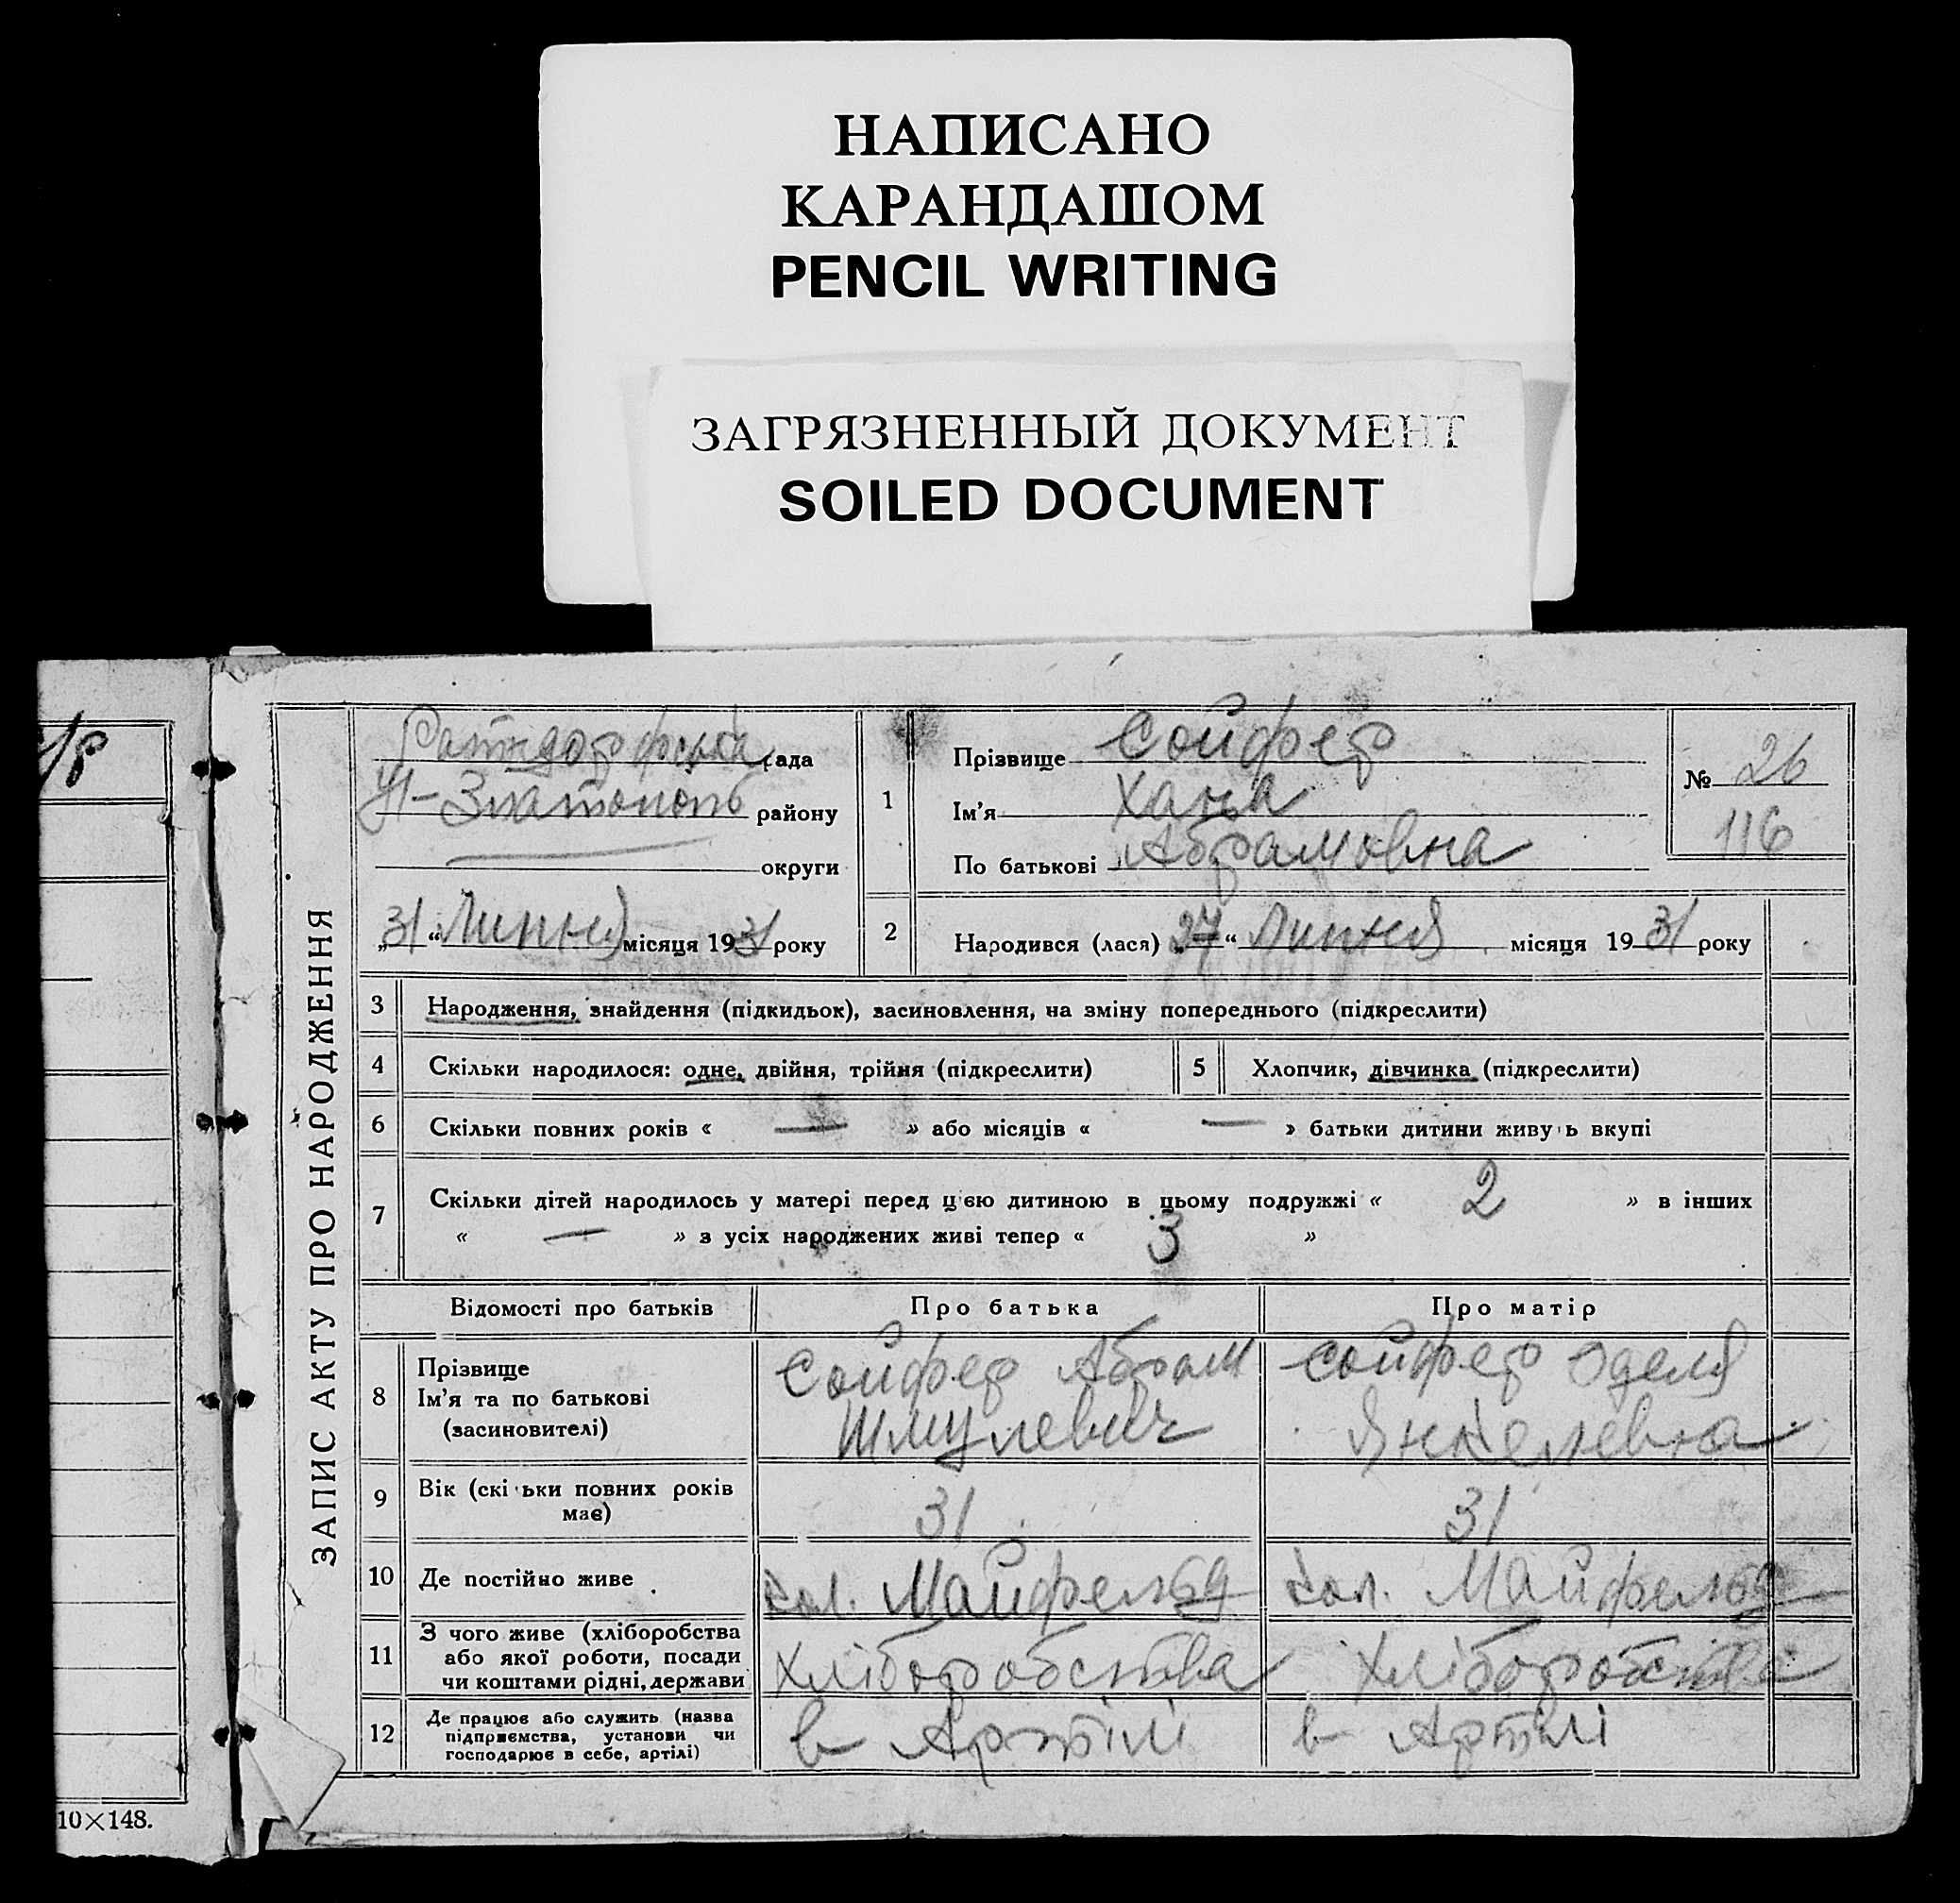 НАПИСАНО
КАРАНДАШОМ
PENCIL WRITING
ЗАГРЯЗНЕННЫЙ ДОКУМЕНТ
SOILED DOCUMENT
10×148.
ЗАПИС АКТУ ПРО НАРОДЖЕННЯ
Ратндорфська рада
Н-Златополь району
округи
„31“ Липня місяця 1931 року
1
Прізвище Сойфер
Ім'я Хана
По батькові Абрамовна
№ 26
116
2 Народився (лася) „27“ Липня місяця 1931 року
3 Народження, знайдення (підкидьок), засиновлення, на зміну попереднього (підкреслити)
4 Скільки народилося: одне, двійня, трійня (підкреслити)
5 Хлопчик, дівчинка (підкреслити)
6 Скільки повних років « — » або місяців « — » батьки дитини живуь вкупі
7 Скільки дітей народилось у матері перед цією дитиною в цьому подружжі « 2 » в інших
« — » з усіх народжених живі тепер « 3 »
Відомості про батьків Про батька Про матір
8
Прізвище
Ім'я та по батькові
(засиновителі)
Сойфер Абрам
Шмулевич
Сойфер Эделя
Янкелевна
9 Вік (скі ьки повних років
має)
31
31
10 Де постійно живе
кол. Майфельд
кол. Майфельд
11
З чого живе (хліборобства
або якої роботи, посади
чи коштами рідні, держави
Хліборобства
Хліборобства
12
Де працює або служить (назва
підприємства, установи чи
господарює в себе, артілі)
в Артілі
в Артілі